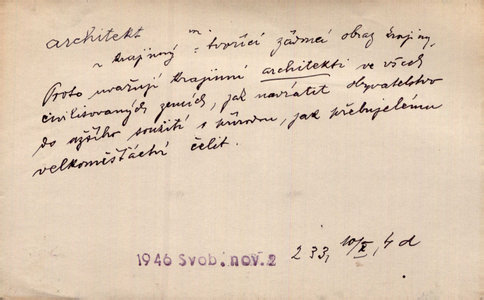 architekt m
~ krajinný = tvořící žádoucí obraz krajiny.
Proto uvažují krajinní architekti ve všech
civilisovaných zemích, jak navrátit obyvatelstvo
do užšího soužití s přírodou, jak přebujelému
velkoměšťáctví čelit.
1946 Svob. nov. 2 233, 10/X, 4 d